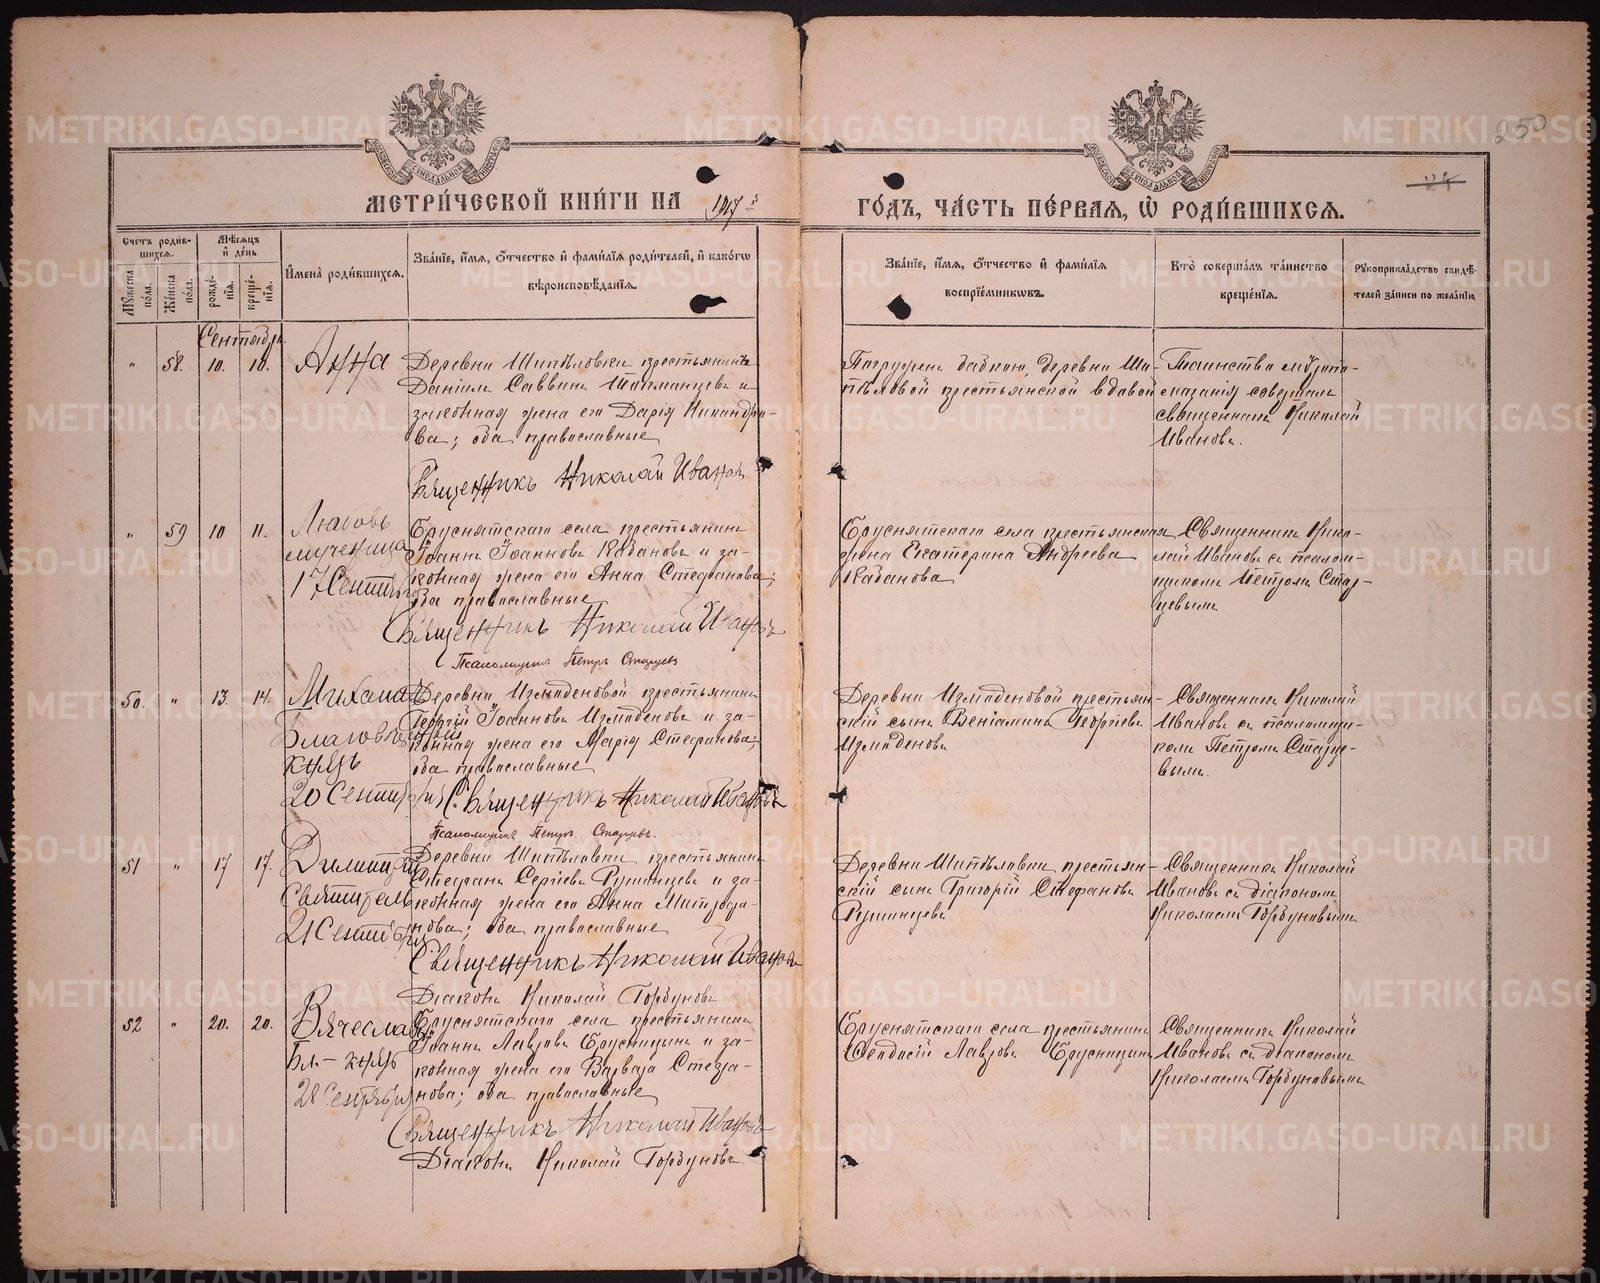 250
МЕТРИЧЕСКОЙ КНИГИ НА 1917 ГОДЪ, ЧАСТЬ ПЕРВАЯ, Ѡ РОДИВШИХСЯ.
Счетъ родившихся.
Мужеска пола.
Женска пола.
Мѣсяцъ и день
рожденія.
крещенія.
Имена родившихся.
Званіе, имя, отчество и фамилія родителей, и какогѡ
вѣроисповѣданія.
Званіе, имя, отчество и фамилія
воспріемникѡвъ.
Кто совершалъ таинство
крещенія.
Рукоприкладство свидѣ-
телей записи по желанію.
Сентябрь
" 58. 10. 10. Анна
Деревни Шипѣловки крестьянинъ
Даніилъ Саввинъ и
законная жена его Дарія Никандро-
ва; оба православные
Священникъ Николай Ивановъ
Погружена бабкою, деревни Ши-
пѣловой крестьянской вдовой
Таинство мѵропо-
мазанія совершалъ
священникъ Николай
Ивановъ.
" 59 10 11. Любовь
мученица
17 Сентября
Бруснятскаго села крестьянинъ
Іоаннъ Іоанновъ Кабановъ и за-
конная жена его Анна Стефанова;
оба православные
Священникъ Николай Ивановъ
Псаломщикъ Петръ Старцевъ
Бруснятскаго села крестьянская
жена Екатерина Андреева
Кабанова
Священникъ Нико-
лай Ивановъ съ псалом-
щикомъ Петромъ Стар-
цевымъ
50. " 13. 14. Михаилъ
Благовѣрный
князь
20 Сентября
Деревни Измоденовой крестьянинъ
Георгій Іоанновъ Измоденовъ и за-
конная жена его Марія Стефанова;
оба православные
Священникъ Николай Ивановъ
Псаломщикъ Петръ Старцевъ.
Деревни Измоденовой крестьян-
скій сынъ Веніаминъ Георгіевъ
Измоденовъ
Священникъ Николай
Ивановъ съ псаломщи-
комъ Петромъ Старце-
вымъ.
51 " 17 17. Димитрій
Святитель
21 Сентября
Деревни Шипѣловки крестьянинъ
Стефанъ Сергіевъ Румянцевъ и за-
конная жена его Анна Митрофа-
нова; оба православные
Священникъ Николай Ивановъ
Діаконъ Николай Горбуновъ
Деревни Шипѣловки крестьян-
скій сынъ Григорій Стефановъ
Румянцевъ
Священникъ Николай
Ивановъ съ діакономъ
Николаемъ Горбуновымъ
52 " 20. 20. Вячеславъ
Бл. князь
28 Сентября
Бруснятскаго села крестьянинъ
Іоаннъ Лавровъ Брусницынъ и за-
конная жена его Варвара Стефа-
нова; оба православные
Священникъ Николай Ивановъ
Діаконъ Николай Горбуновъ.
Бруснятскаго села крестьянинъ
Ѳеодосій Лавровъ Брусницынъ
Священникъ Николай
Ивановъ съ діакономъ
Николаемъ Горбуновымъ
METRIKI.GASO-URAL.RU